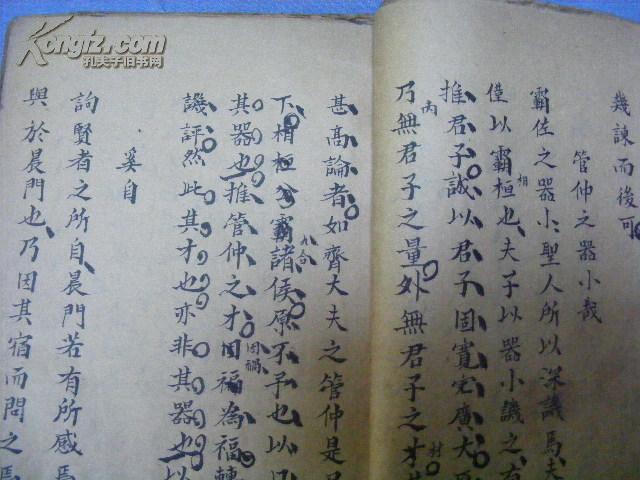 Kongfz.com
孔夫子旧书网
幾諫而後可
管仲之器小哉
霸佐之器小聖人所以深譏焉夫
僅以霸桓也夫子以器小譏之有
相
推君子誠以君子固寬宏廣大
乃無君子之量外無君子之才
内
甚高論者如齊大夫之管仲是
下相桓公霸諸侯原不予也以
九合
其器也推管仲之才因福為福轉
因禍
譏評然此其才也亦非其器也以
奚自
詢賢者之所自晨門若有所感焉
與於晨門也乃因其宿而問之焉